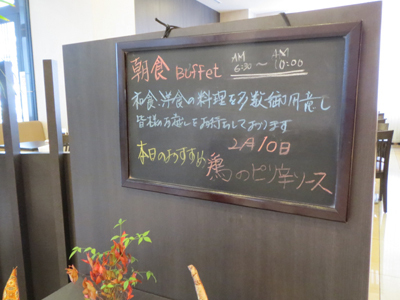 朝食 Buffet AM 6:30 ～ AM 10:00
和食、洋食の料理を多数御用意し
皆様のお越しをお待ちしております
2月10日
本日のおすすめ 鶏のピリ辛ソース